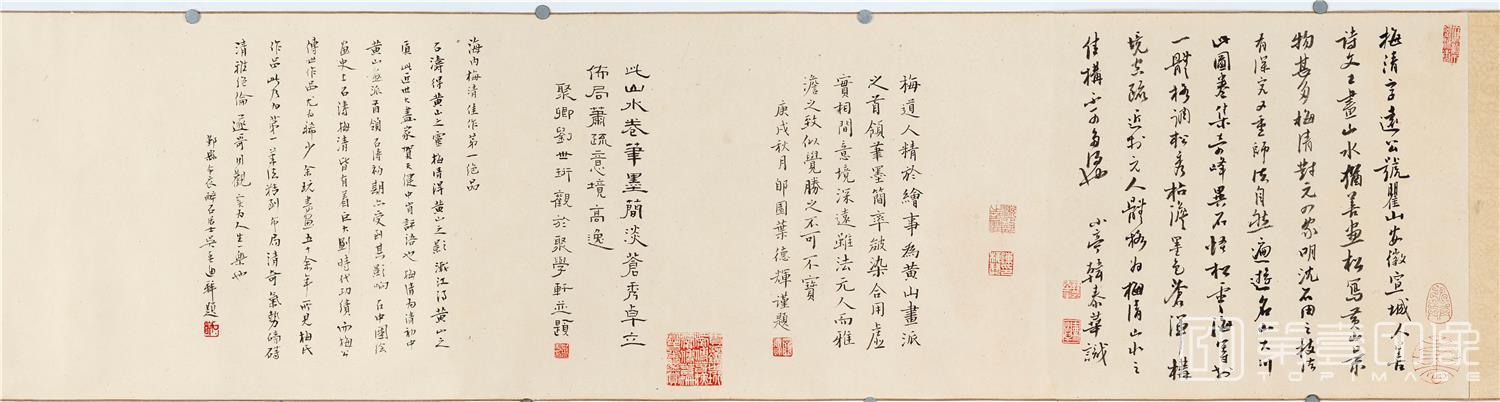 梅清字遠公號瞿山安徽宣城人善
诗文工畫山水猶善畫松寫黄山景
物甚多梅清對元四家明沈石田之技法
有深究又重師法自然遍遊名山大川
此圖卷集奇峰異石怪松雲海等於
一體格調松秀枯澹墨色蒼渾構
境空疏近於元人體格为梅清山水之
佳構
小亭韓泰華識
梅道人精於繪事為黄山畫派
之首領筆墨簡率皴染合用虚
實相間意境深遠雖法元人而雅
澹之致似覺勝之不可不寶
庚戌秋月郋園葉德輝谨題
此山水卷筆墨簡淡蒼秀卓立
佈局蕭疏意境高逸
聚卿劉世珩觀於聚學軒並題
海内梅清佳作第一绝品
石濤得黄山之靈梅清得黄山之影浙江得黄山之
質此近世大畫家賀天健中肯評語也梅清为清初中
黄山画派首領石涛初期亦受到其影响在中國绘
画史上石涛梅清皆有着巨大劃時代功績而梅公
傳世作品尤为稀少余玩書画五十余年所見梅氏
作品此乃为第一筆法精到布局清奇氣勢磅礴
清雅绝倫 同觀实为人生一樂也
TOPIMAGE